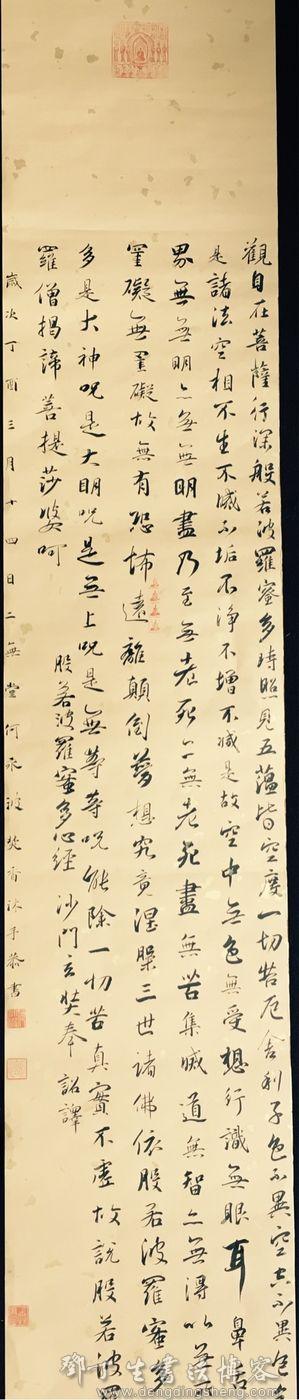 觀自在菩薩行深般若波羅蜜多時照見五蘊皆空度一切苦厄舍利子色不異空空不異色
是諸法空相不生不滅不垢不淨不增不減是故空中無色無受想行識無眼耳鼻舌
界無無明亦無無明盡乃至無老死亦無老死盡無苦集滅道無智亦無得以無
罣礙無罣礙故無有恐怖遠離顛倒夢想究竟涅槃三世諸佛依般若波羅蜜多
多是大神咒是大明咒是無上咒是無等等咒能除一切苦真實不虛故說般若波羅
羅僧揭諦菩提莎婆呵
般若波羅蜜多心經 沙門玄奘奉 詔譯
歲次丁酉三月十四日二無堂何永波焚香沐手恭書
鄧丁生書法博客
www.dengdingsheng.com